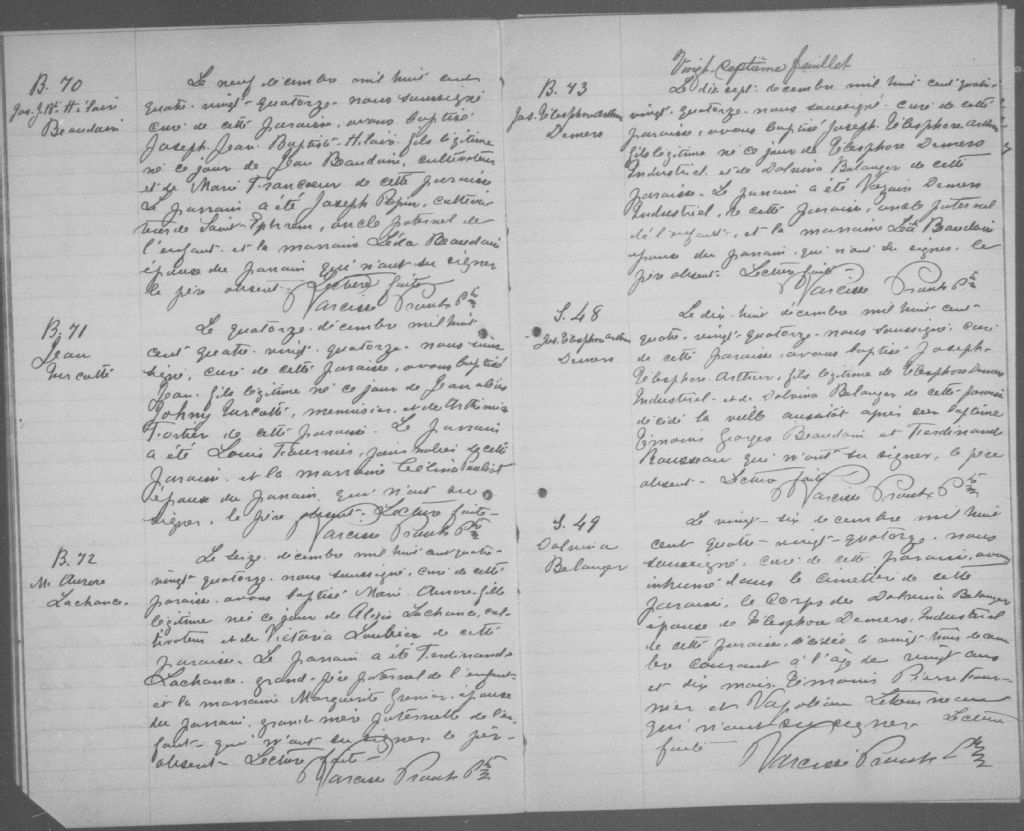 B. 70
Jos. J. Bte Hilaire
Beaudoin
Le neuf décembre mil huit cent
quatre-vingt-quatorze nous soussigné
curé de cette paroisse, avons baptisé
Joseph Jean Baptiste Hilaire fils légitime
né ce jour de Jean Beaudoin, cultivateur
et de Marie Francoeur de cette paroisse
Le parrain a été Joseph Pépin, cultiva
teur de Saint Ephrem, oncle paternel de
l'enfant et la marraine Léda Beaudoin
épouse du parrain qui n'ont su signer
le père absent. Lecture faite
Narcisse Proulx Ptre
B. 71
Jean
Turcotte
Le quatorze décembre mil huit
cent quatre-vingt-quatorze nous sous
signé, curé de cette paroisse, avons baptisé
Jean fils légitime né ce jour de Jean alias
Johny Turcotte, menuisier, et de Arthémise
Fortier de cette paroisse. Le parrain
a été Louis Fournier, journalier de cette
paroisse et la marraine Célina
épouse du parrain qui n'ont su
signer, le père absent. Lecture faite
Narcisse Proulx Ptre
B. 72
M. Aurore
Lachance.
Le seize décembre mil huit cent quatre-
vingt quatorze nous soussigné, curé de cette
paroisse avons baptisé Marie Aurore fille
légitime née ce jour de Lachance, cul
tivateur et de Victoria Loubier de cette
paroisse. Le parrain a été Ferdinand
Lachance grand-père paternel de l'enfant
et la marraine Marguerite Grenier épouse
du parrain, grand'mère paternelle de l'en
fant qui n'ont su signer le père
absent. Lecture faite
Narcisse Proulx Ptre
Vingt-septième feuillet
B. 73
Jos. Télesphore Arthur
Demers
Le dix sept décembre mil huit cent quatre
vingt-quatorze nous soussigné curé de cette
paroisse, avons baptisé Joseph Télesphore Arthur
fils légitime né ce jour de Télesphore Demers
Industriel et de Dalvina Belanger de cette
paroisse. Le parrain a été Nazaire Demers
Industriel, de cette paroisse, oncle paternel
de l'enfant, et la marraine Léa Beaudoin
épouse du parrain qui n'ont su signer. le
père absent. Lecture faite
Narcisse Proulx Ptre
S. 48
Jos. Télesphore Arthur
Demers
Le dix huit décembre mil huit cent
quatre-vingt-quatorze nous soussigné curé
de cette paroisse avons baptisé Joseph
Télesphore Arthur, fils légitime de Télesphore Demers
Industriel et de Dalvina Belanger de cette paroisse
décédé la veille aussitôt après son baptême
Témoins Georges Beaudoin et Ferdinand
Rousseau qui n'ont su signer, le père
absent. Lecture faite
Narcisse Proulx Ptre
S. 49
Dalvina
Belanger
Le vingt-six décembre mil huit
cent quatre-vingt-quatorze nous
soussigné, curé de cette paroisse, avons
inhumé dans le cimetière de cette
paroisse, le corps de Dalvina Belanger
épouse de Télesphore Demers, Industriel
de cette paroisse, décédée le vingt-trois décem
bre courant à l'âge de vingt ans
et dix mois. Témoins Pierre Four-
nier et Napoléon Letourneau
qui n'ont su signer Lecture
faite
Narcisse Proulx Ptre